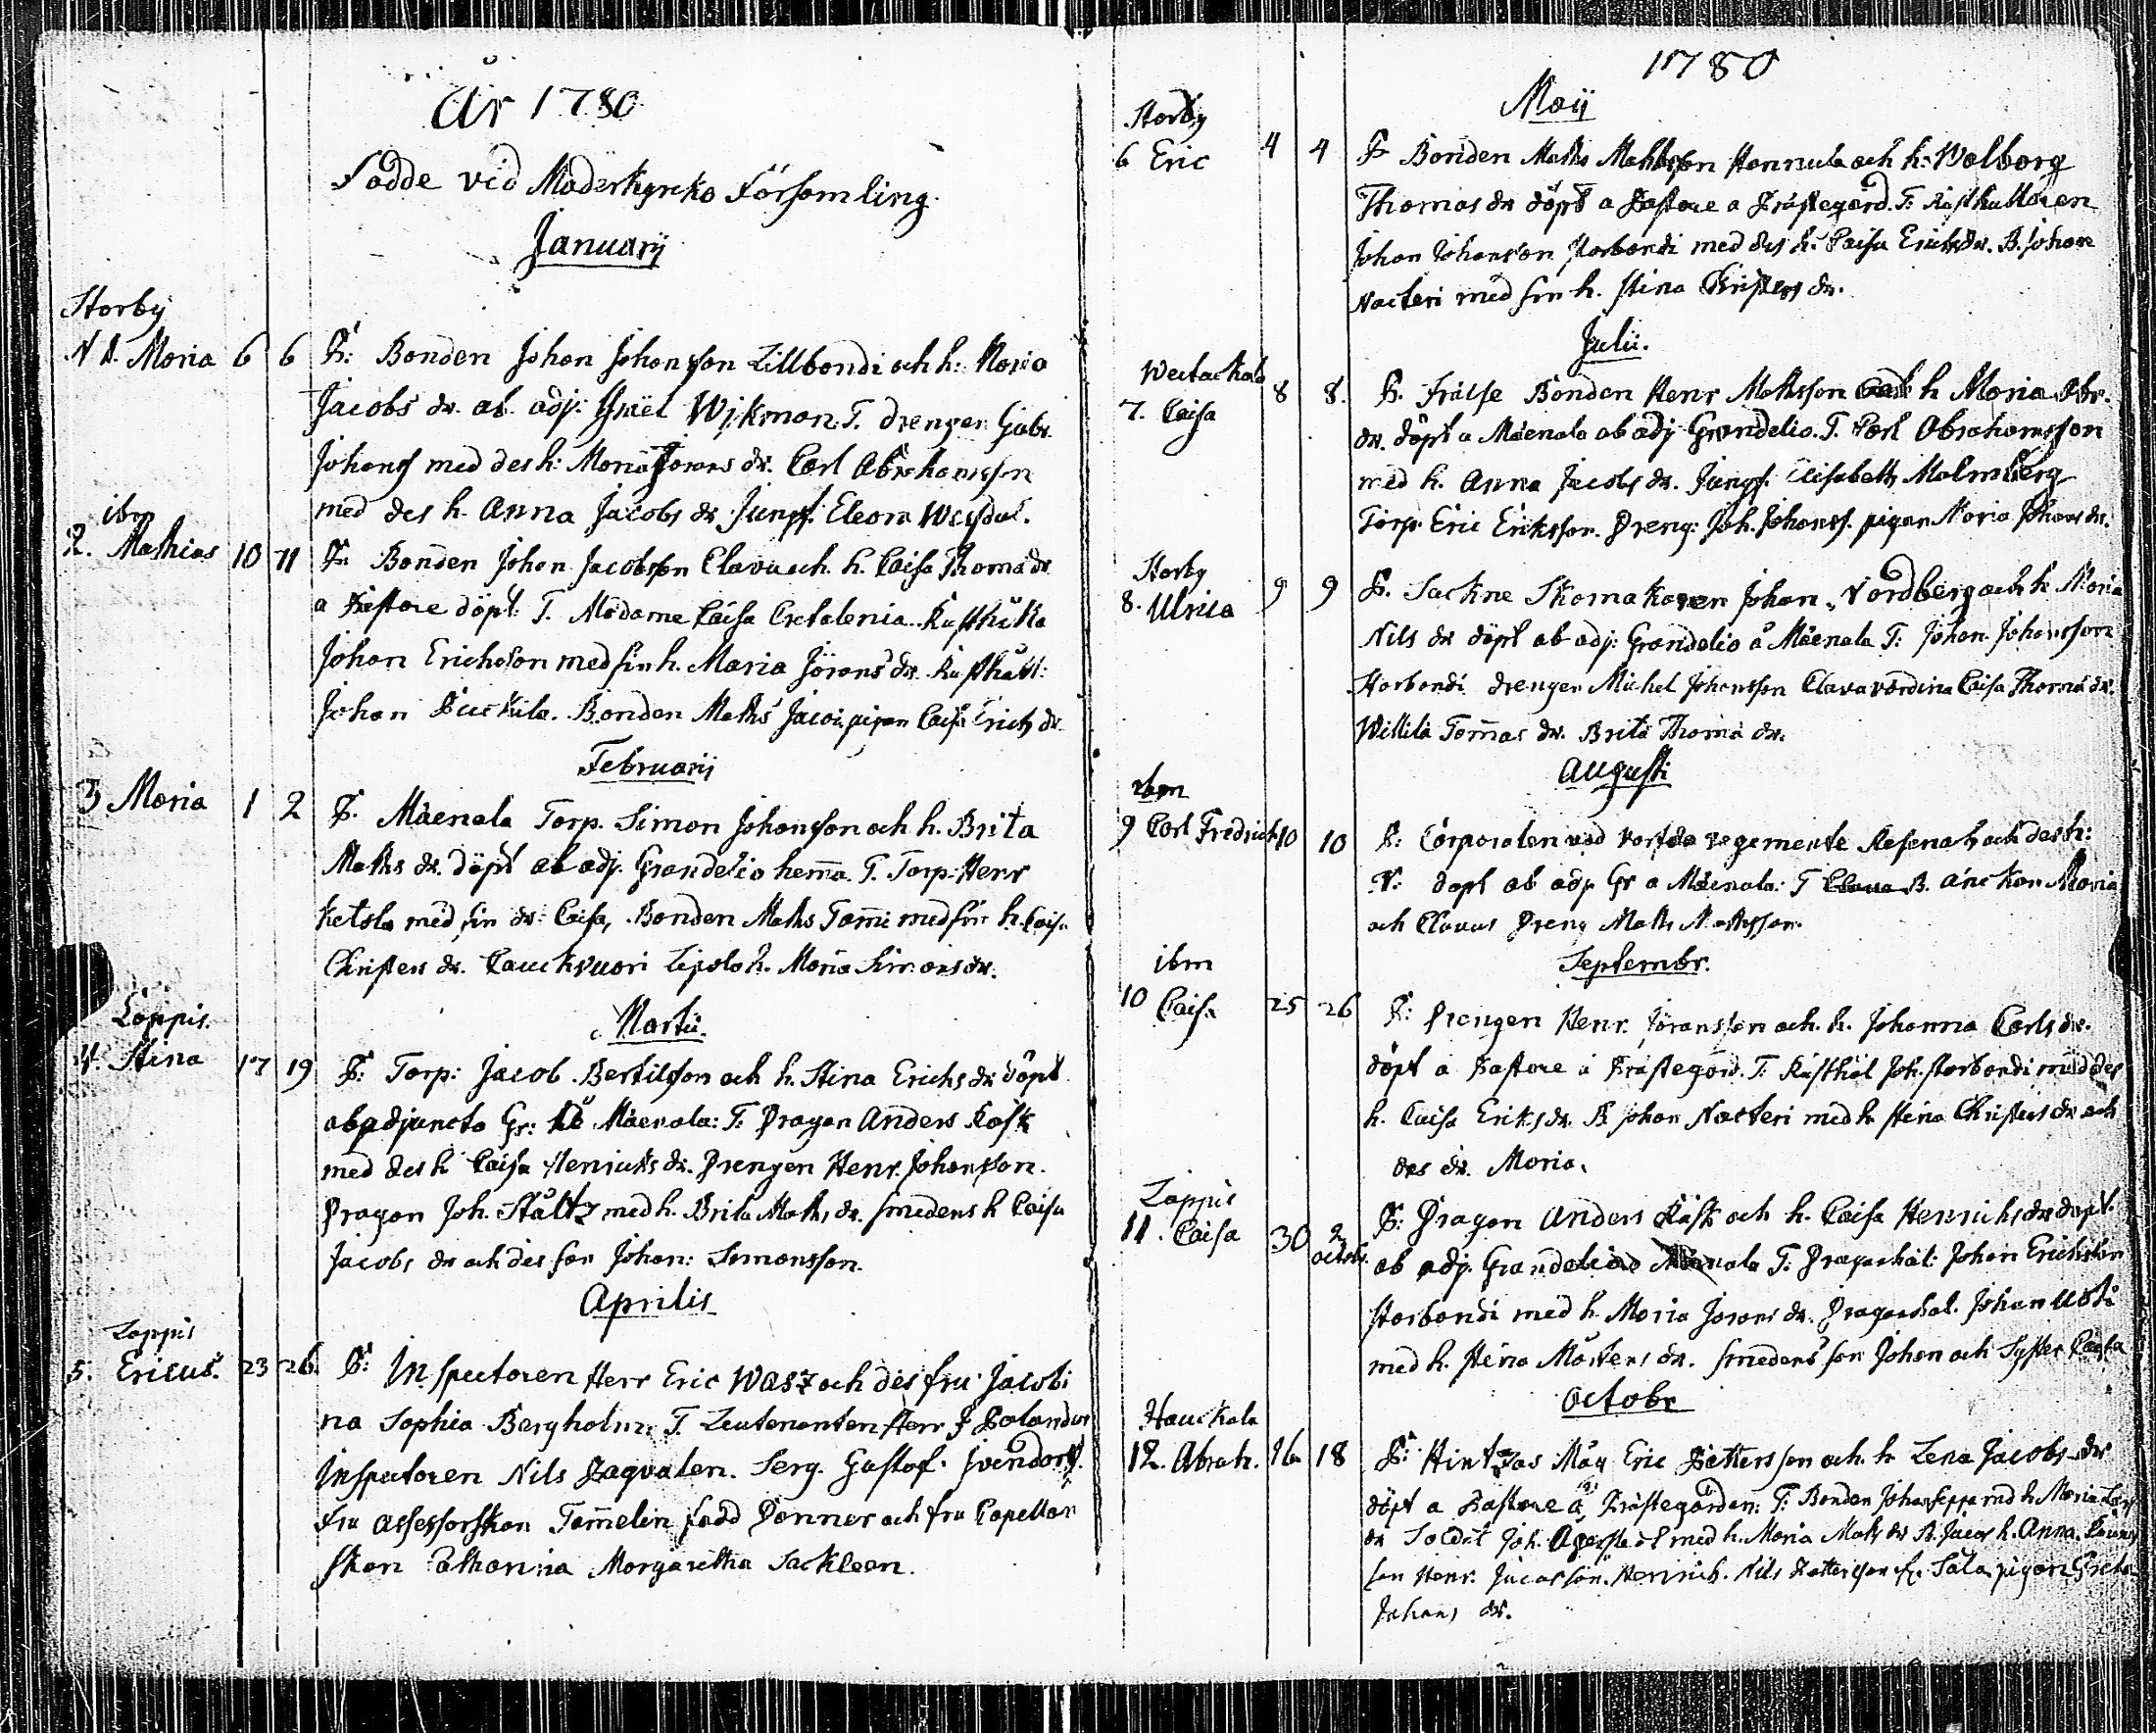 År 1780
Födde vid Moderkyrko Församling.
Januarij
Storby
N 1. Maria 6 6 F: Bonden Johan Johansson Lillbondi och h: Maria
Jacobs dr. ab. adj: Israël Wijkman. T. drengen Gabr.
Johanss med des h: Maria Jörans dr. Carl Abrahamsson
med des h. Anna Jacobs dr. Jungf. Eleora
ibm
2. Mathias 10 11 F. Bonden Johan Jacobsson Clavu och. h. Caisa Thomæ dr
a Pastore döpt. T. Madame Caisa Kusthåll.
Johan Erichsson med sin h. Maria Jörans dr. Rusthåll:
Johan Bonden Maths pigan Caisa Erichs dr.
Februarij
3 Maria 1 2 F. Mäenala Torp. Simon Johansson och h. Brita
Maths dr. döpt ab adj. Grandelio hema. T. Torp: Henr
Ketola med sin dr. Caisa, Bonden Maths Tammi med sin h. Caisa
Christers dr. h. Maria Simons dr.
Martii.
Loppis.
4. Stina 17 19 F: Torp: Jacob Bertilsson och h. Stina Erichs dr döpt
ab adjuncto Gr: Mäenala: T: Dragon Anders Rask
med des h Caisa Henrichs dr. Drengen Henr. Johansson.
Dragon Joh. Ståltz med h. Brita Maths dr. smedens h Caisa
Jacobs dr och des son Johan: Simonsson.
Aprilis
Loppis
5. Ericus. 23 26. F: Inspectoren Herr Eric Wasz och des fru Jacobi
na Sophia Bergholm. T. Leutenanten Herr J Polandur
Inspectoren Nils Zaqvalen. Serg. Gustof
Fru Assessorskan Tammelin född Donner och fru Capellan
skan Margaretha Sackleen.
1780
Maij
Storby
6 Eric 4 4 F Bonden Maths Mathsson Hannula och h: Walborg
Thomas dr döpt a Pastore a Prästegård. T. Rusthållaren
Johan Johansson Storbondi med des h. Caisa Erichs dr. B. Johan
Nacteri med sin h. Stina Christers dr.
Julii.
7. Caisa 8 8. F. Frälse Bonden Henr Mathsson och h Maria Abr.
dr. döpt a Mäenala ab adj Grandelio. T. Carl Abrahamsson
med h. Anna Jacobs dr. Jungf. Elisabeth Malmberg
Torp. Eric Eriksson. Dreng: Joh. Johanss. pigan Maria Johans dr.
Storby
8. Ulrica 9 9 F. Sockne Skomakaren Johan Nordberg och h Maria
Nils dr döpt ab adj: Grandelio å Mäenala T: Johan Johansson
Storbondi drengen Michel Johansson Clava värdina Caisa Thomæ dr.
Willila Tomas dr. Brita Thomæ dr.
Augusti
ibm
9 Carl Fredrich 10 10 F: Corporalen vid regemente och des h:
N: döpt ab adj Gr a Mäenala: T B. änckan Maria
och Clavus Dreng Maths Mathsson.
Septembr.
ibm
10 Caisa 25 26 F: Drengen Henr. Jöransson och. h. Johanna Carls dr.
döpt a Pastore å Prästegård. T. Rusthål Joh. Storbondi med des
h. Caisa Eriks dr. B Johan Nacteri med h Stina Christers dr och
des dr. Maria.
Loppis
11. Caisa 30 2 octobr. F: Dragon Anders Rask och h. Caisa Henrichs dr döpt.
ab adj. Grandelio Mäenala T. Dragonhål: Johan Erichsson
Storbondi med h. Maria Jorans dr. Dragonhål. Johan Uoti
med h. Stina Mårtens dr. smedens son Johan och Syster Caisa
Octobr
Hauckala
12. Abrah. 16 18 F: Måg Eric Pettersson och h Lena Jacobs dr
döpt a Pastore å Prästegården: T: Bonden Johan Seppa md h. Maria
dr Soldt Joh. med h. Maria Maths dr B. Jacob h. Anna
son Henr. Henrich. Nils Pettersson pigan Greta
Johans dr.